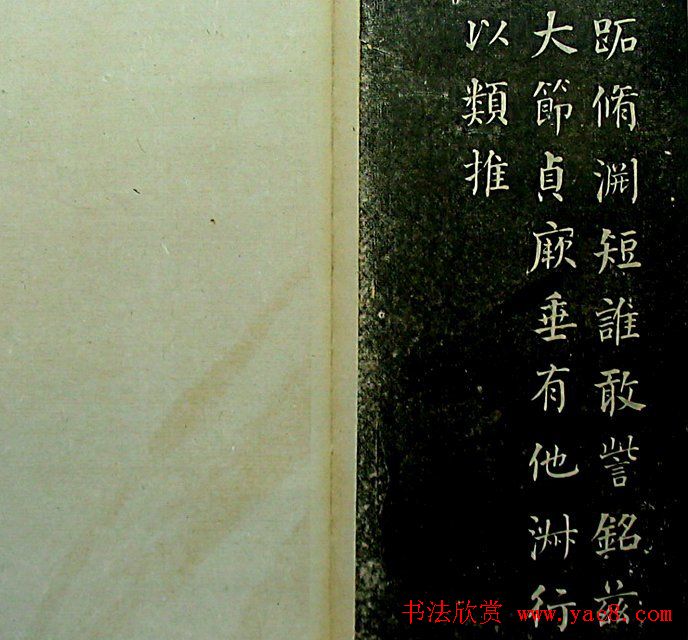 跖脩渊短誰敢訾銘茲
大節貞厥垂有他淋行
以類推
书法欣赏 www.yac8.com